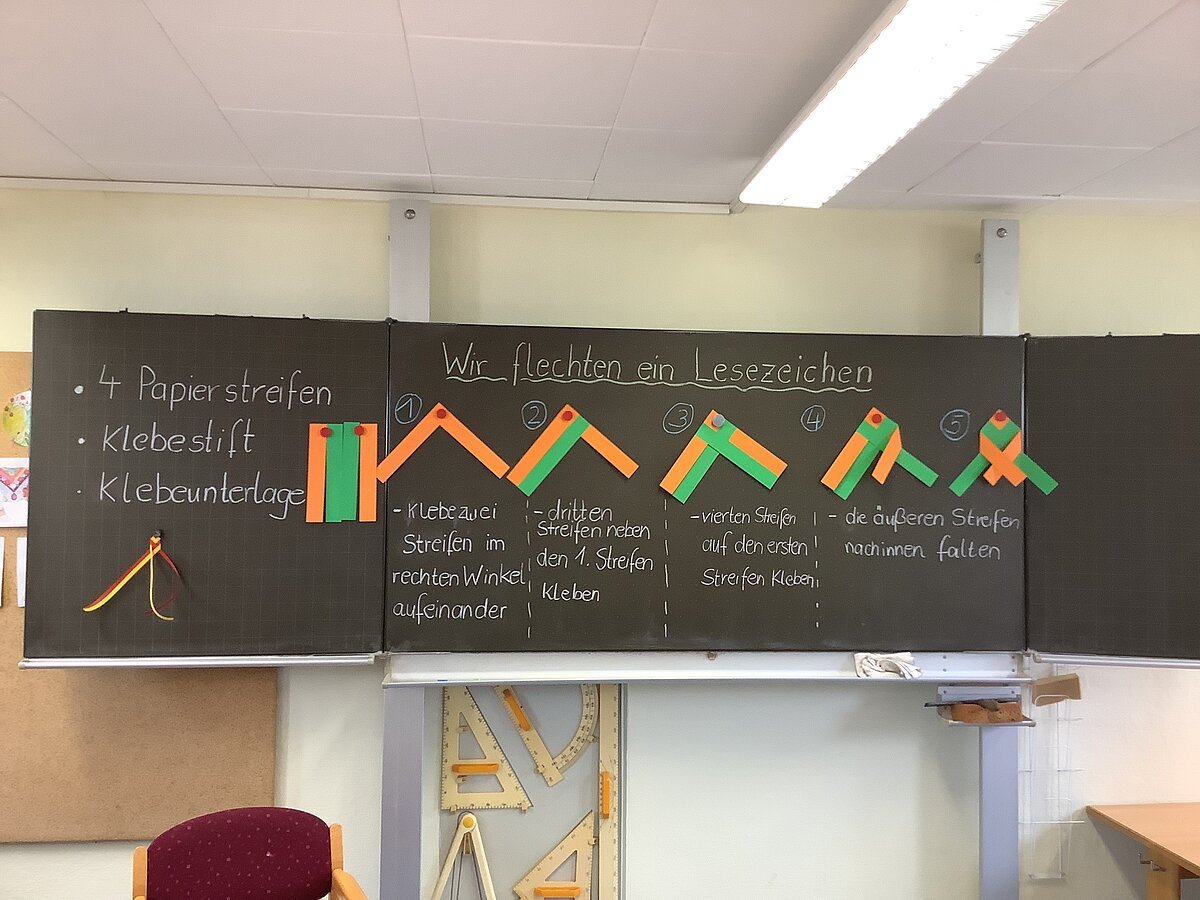 • 4 Papierstreifen
• Klebestift
• Klebeunterlage
Wir flechten ein Lesezeichen
1
2
3
4
5
- Klebe zwei
Streifen im
rechten Winkel
aufeinander
- dritten
Streifen neben
den 1. Streifen
Kleben
- vierten Streifen
auf den ersten
Streifen Kleben
- die äußeren Streifen
nach innen falten